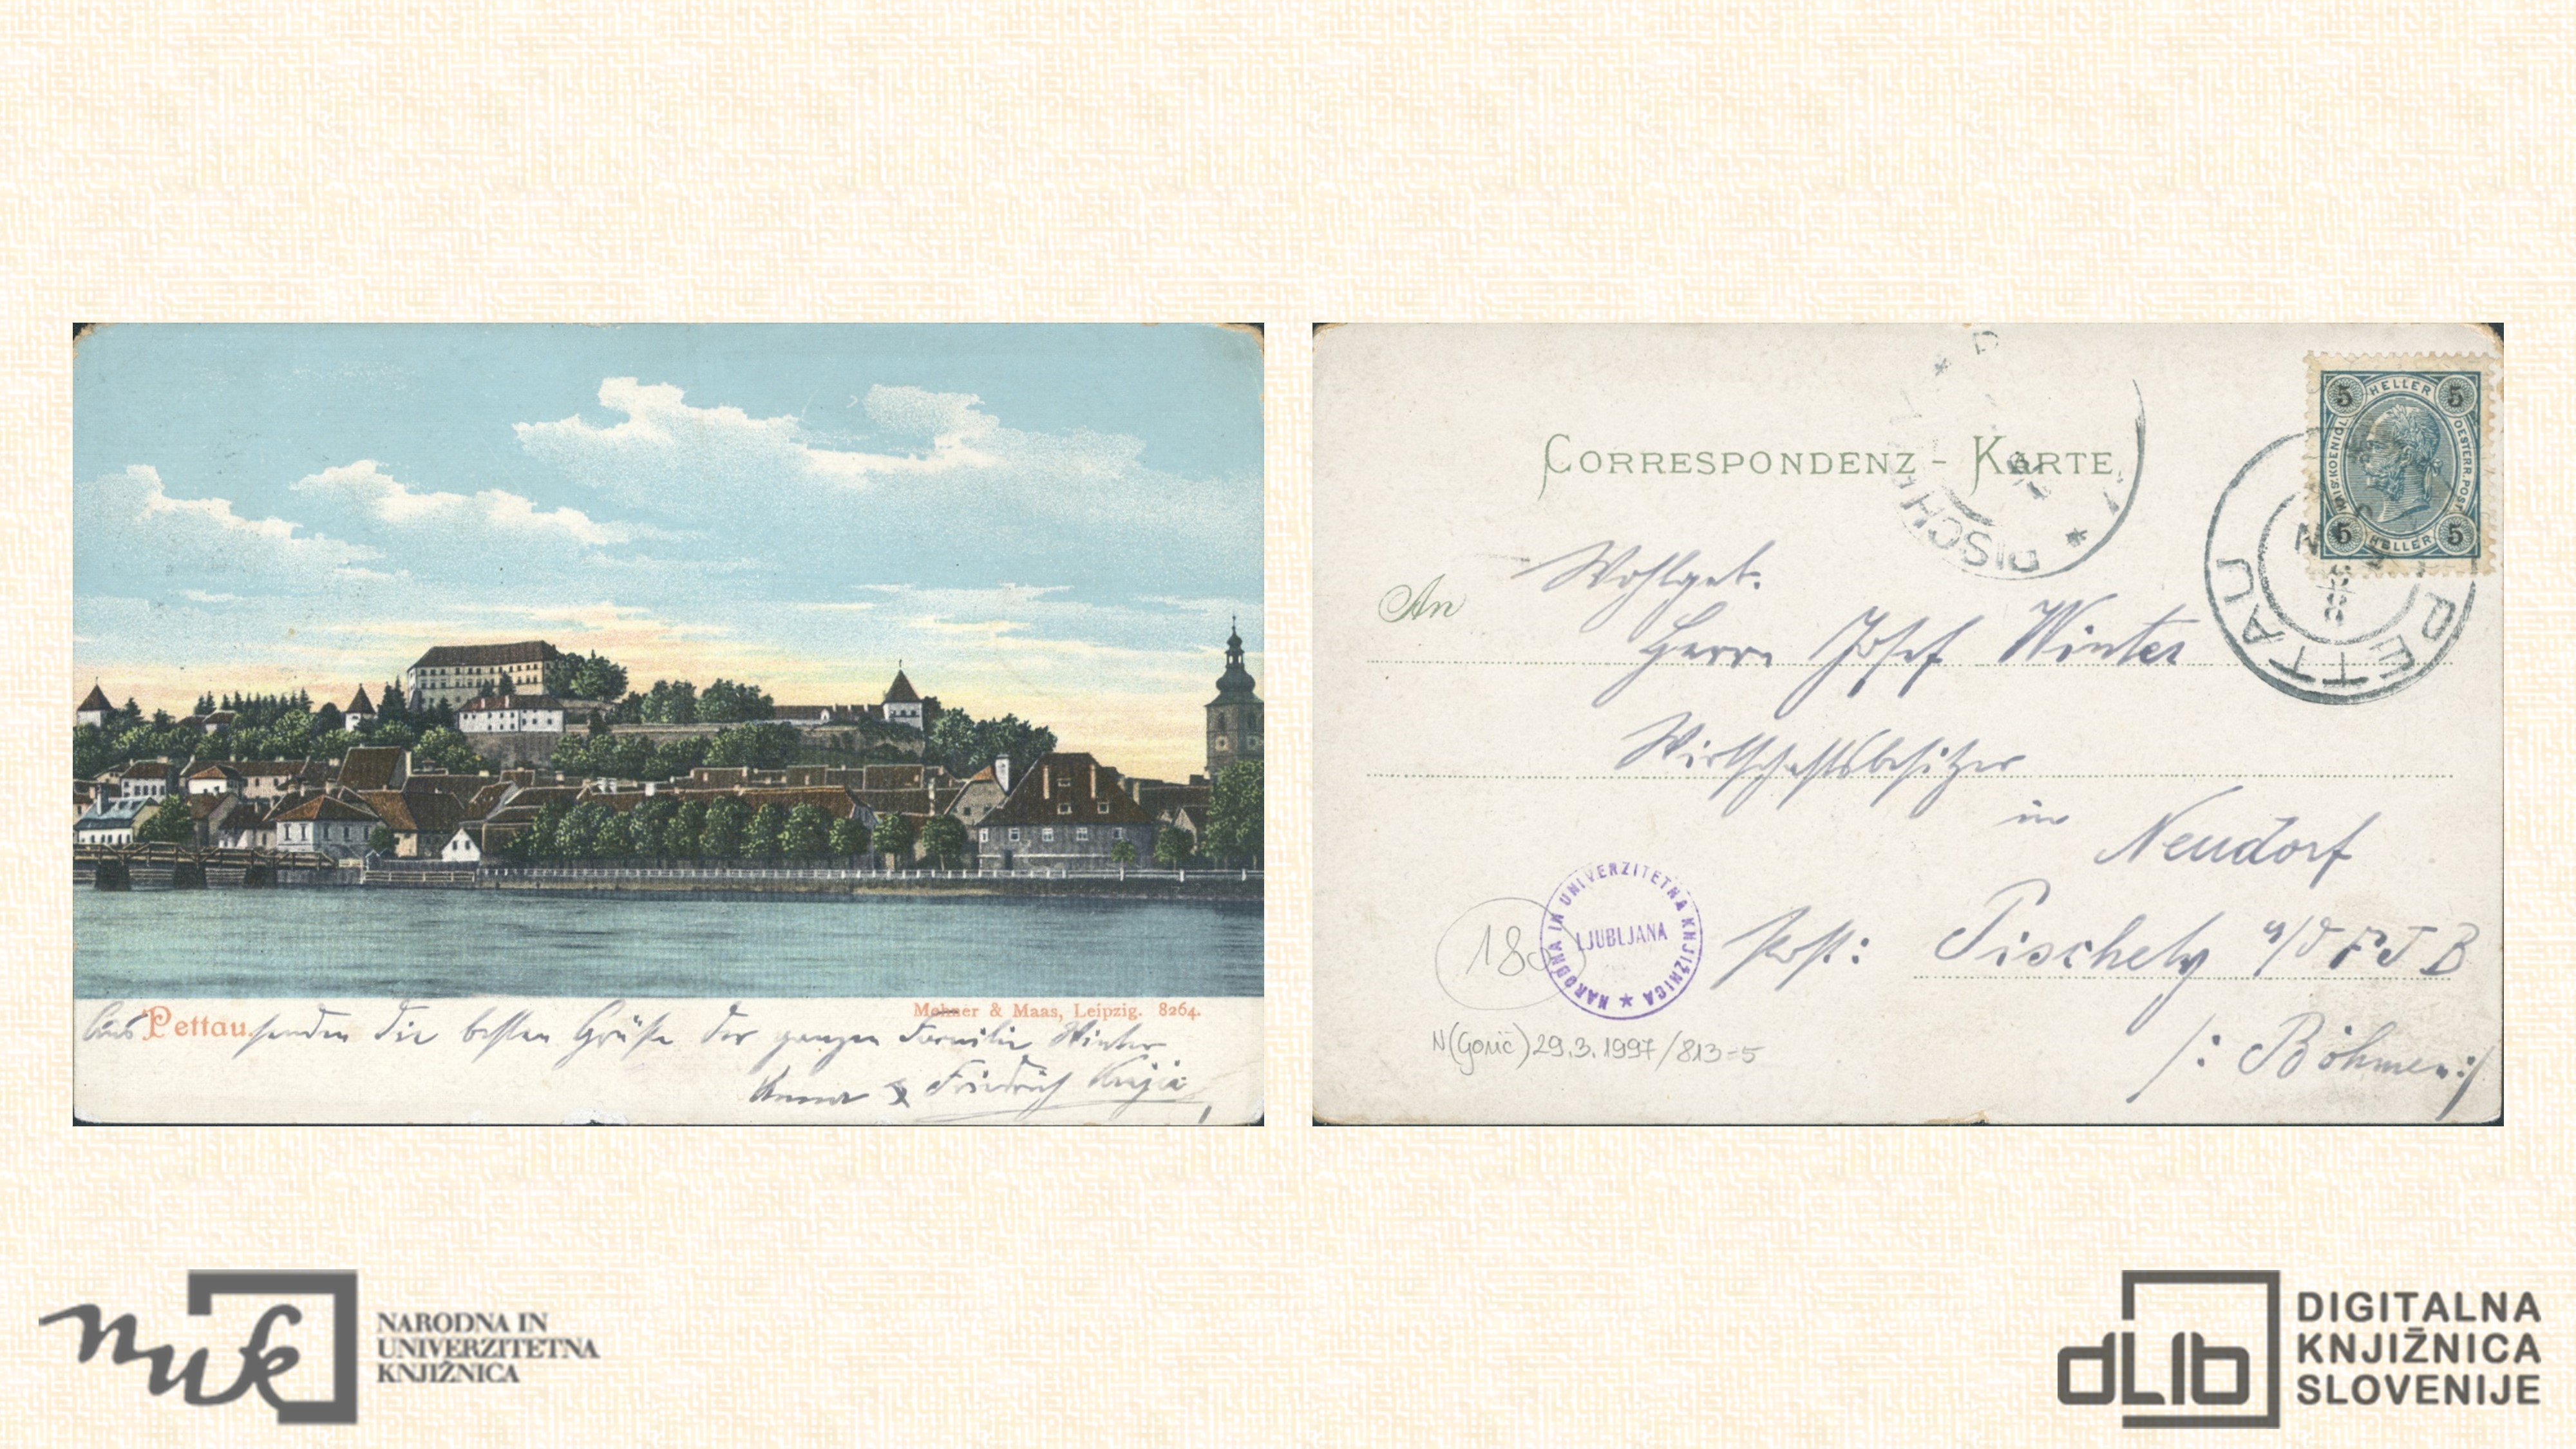 Mehner & Maas, Leipzig. 8264.
Aus Pettau. senden die besten Grüße der ganzen Familie Winter
Anna & Friedrich
CORRESPONDENZ - KARTE
5 HELLER 5
KAIS. KOENIGL. OESTERR. POST
5 HELLER 5
PETTAU
PISCH
An
Wohlgeb.
Herrn Josef Winter
Wirtschaftsbesitzer
in
Neudorf
Post: Pischely a/d F J B
/: Böhmen :/
180
NARODNA IN UNIVERZITETNA KNJIŽNICA
LJUBLJANA
N(Gorič) 29.3.1997/813-5
nuk
NARODNA IN
UNIVERZITETNA
KNJIŽNICA
dLib
DIGITALNA
KNJIŽNICA
SLOVENIJE